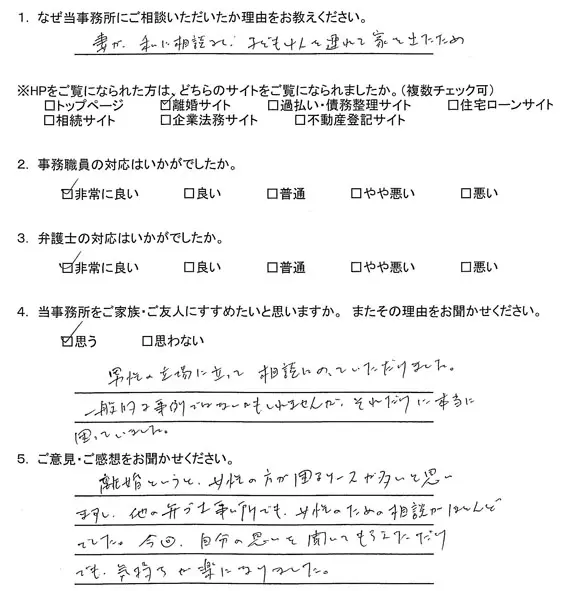 1. なぜ当事務所にご相談いただいたか理由をお教えください。
妻が、私に相談なく、子ども4人を連れて家を出たため
※HPをご覧になられた方は、どちらのサイトをご覧になられましたか。(複数チェック可)
□トップページ ☑離婚サイト □過払い・債務整理サイト □住宅ローンサイト
□相続サイト □企業法務サイト □不動産登記サイト
2. 事務職員の対応はいかがでしたか。
☑非常に良い □良い □普通 □やや悪い □悪い
3. 弁護士の対応はいかがでしたか。
☑非常に良い □良い □普通 □やや悪い □悪い
4. 当事務所をご家族・ご友人にすすめたいと思いますか。 またその理由をお聞かせください。
☑思う □思わない
男性の立場に立って 相談にのっていただけました。
一般的な事例ではないかもしれませんが、それだけに本当に
困っていました。
5. ご意見・ご感想をお聞かせください。
離婚というと、女性の方が困るケースが多いと思い
ますし、他の弁ゴ士事ム所でも、女性のための相談がほとんど
でした。今回、自分の思いを聞いてもらえただけ
でも、気持ちが楽になりました。